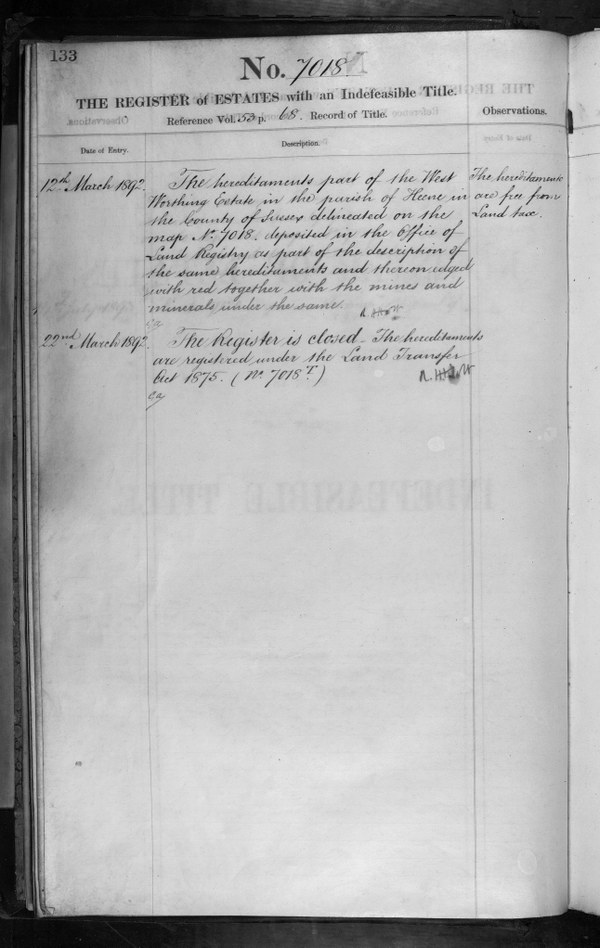 133
No. 7018
THE REGISTER of ESTATES with an Indefeasible Title.
Reference Vol. 53 p. 68. Record of Title.
Observations.
Date of Entry.
Description.
12th March 1892.
The hereditaments part of the West
Worthing Estate in the parish of Heene in
the County of Sussex delineated on the
map No. 7018. deposited in the Office of
Land Registry as part of the description of
the same hereditaments and thereon edged
with red together with the mines and
minerals under the same.
The hereditaments
are free from
Land tax.
22nd March 1892.
The Register is closed - The hereditaments
are registered under the Land Transfer
Act 1875. (No. 7018T.)
INDEFEASIBLE TITLE.